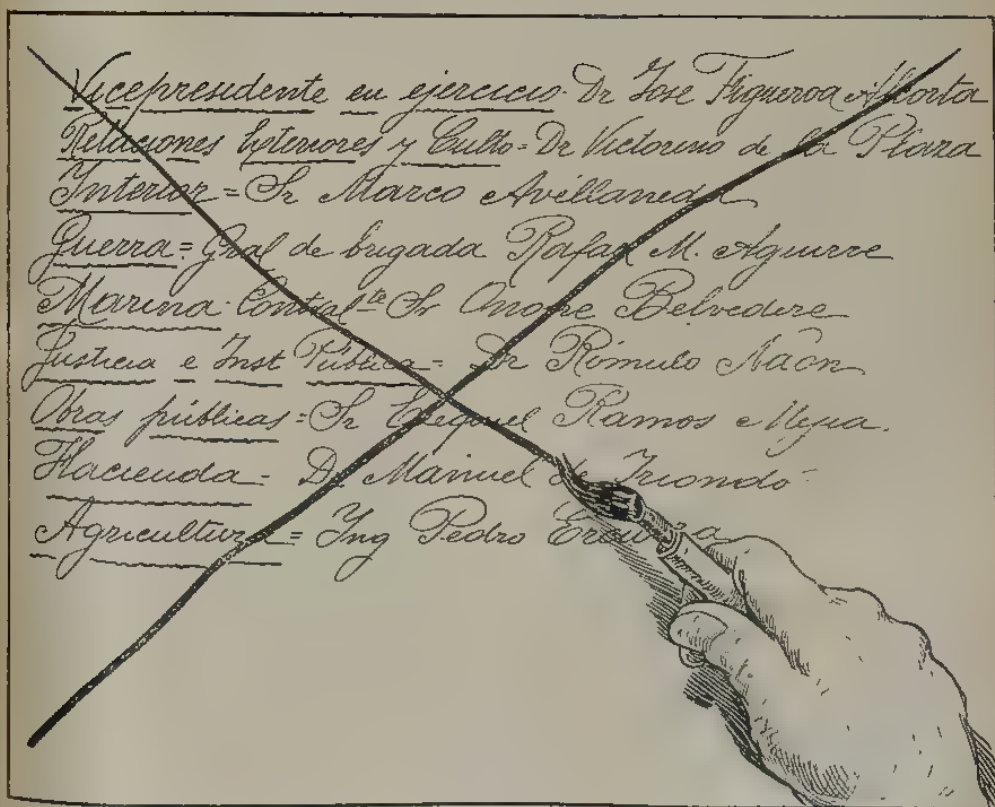 Vicepresidente en ejercicio - Dr Jose Figueroa Alcorta
Relaciones Exteriores y Culto = Dr Victorino de la Plaza
Interior = Sr Marco Avellaneda
Guerra = Gral de brigada Rafael M. Aguirre
Marina - Contralte Sr Onofre Betbeder
Justicia e Inst Pública = Dr Rómulo Náon
Obras públicas = Sr Ezequiel Ramos Mejia.
Hacienda = Dr Manuel de Iriondo
Agricultura = Ing Pedro